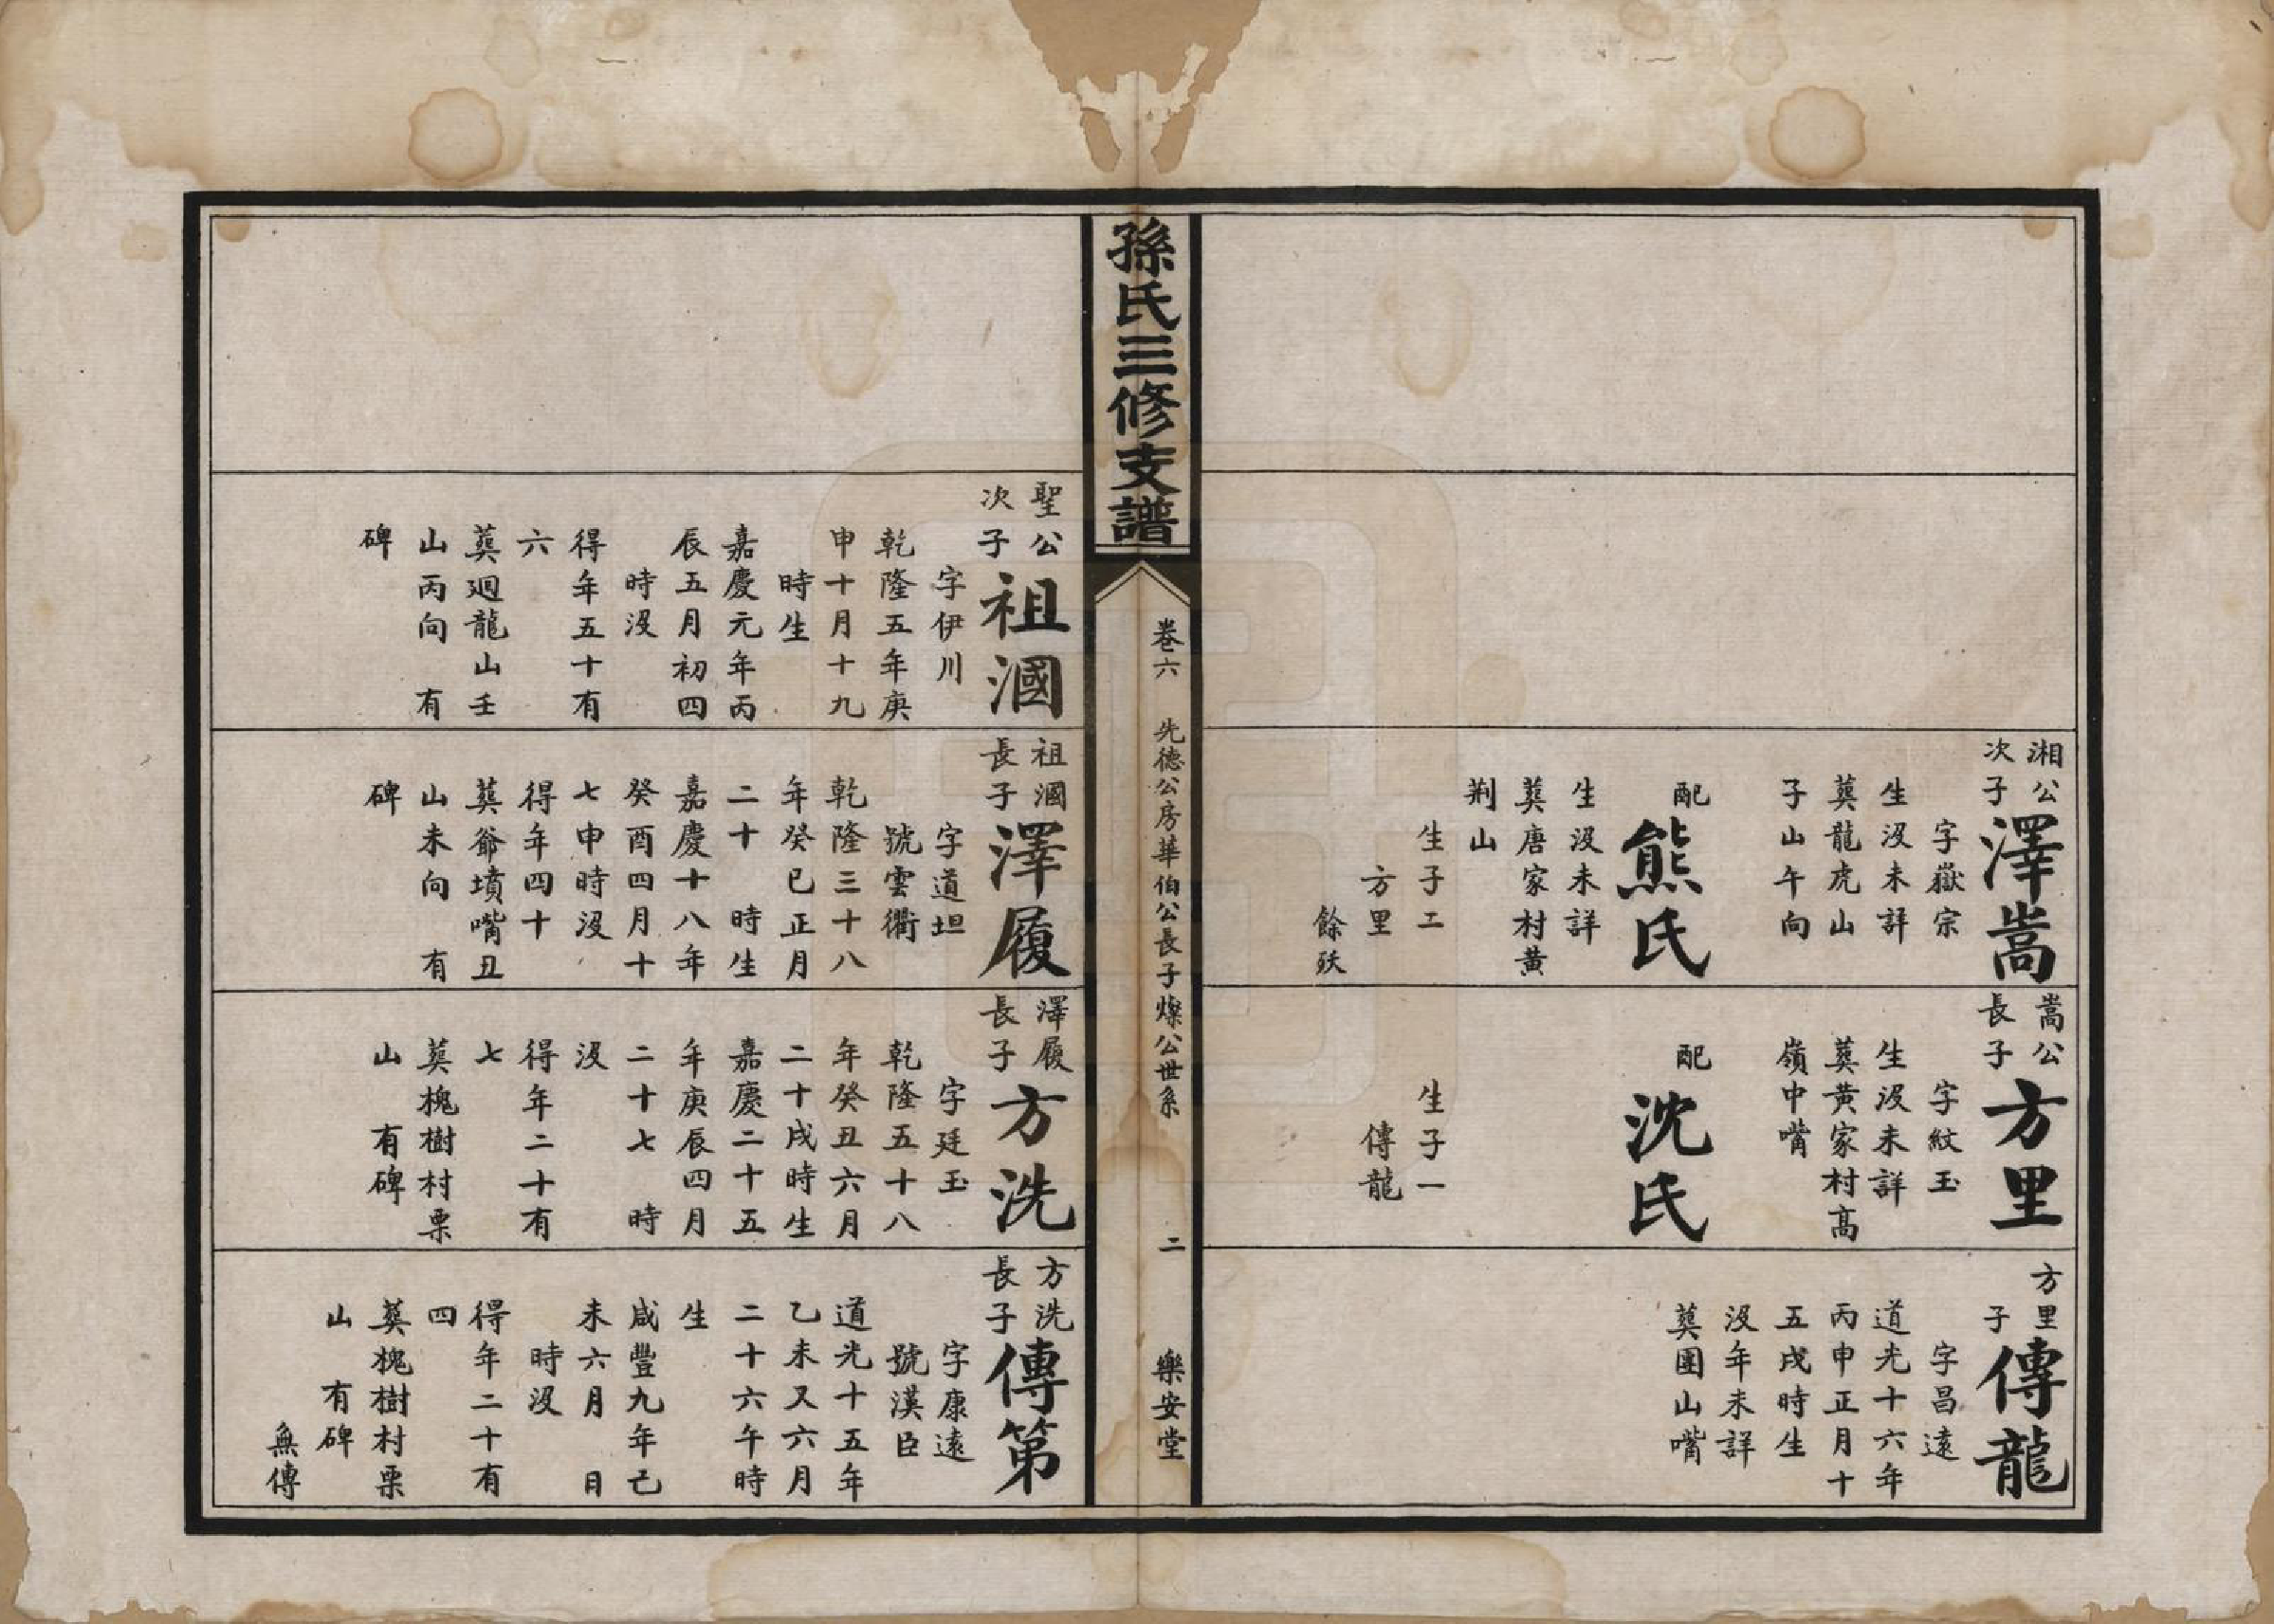 湘公
次子
澤嵩
字嶽宗
生沒未詳
葬龍虎山
子山午向
配
熊氏
生沒未詳
葬唐家村黃
荆山
生子二
方里
餘殀
嵩公
長子
方里
字紋玉
生沒未詳
葬黃家村高
嶺中嘴
配
沈氏
生子一
傳龍
方里
子
傳龍
字昌遠
道光十六年
丙申正月十
五戌時生
沒年未詳
葬團山嘴
孫氏三修支譜
卷六
先德公房華伯公長子燦公世系
二
樂安堂
聖公
次子
祖漍
字伊川
乾隆五年庚
申十月十九
時生
嘉慶元年丙
辰五月初四
時沒
得年五十有
六
葬迴龍山壬
山丙向 有
碑
祖漍
長子
澤履
字道坦
號雲衢
乾隆三十八
年癸巳正月
二十 時生
嘉慶十八年
癸酉四月十
七申時沒
得年四十
葬爺墳嘴丑
山未向 有
碑
澤履
長子
方洗
字廷玉
乾隆五十八
年癸丑六月
二十戌時生
嘉慶二十五
年庚辰四月
二十七 時
沒
得年二十有
七
葬槐樹村栗
山 有碑
方洗
長子
傳第
字康遠
號漢臣
道光十五年
乙未又六月
二十六午時
生
咸豐九年己
未六月 日
時沒
得年二十有
四
葬槐樹村栗
山 有碑
無傳